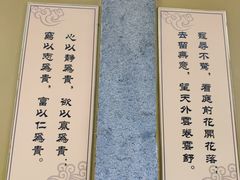 寵辱不驚，看庭前花開花落；
去留無意，望天外雲卷雲舒。
心以靜爲貴，欲以寡爲貴；
窮以志爲貴，富以仁爲貴。